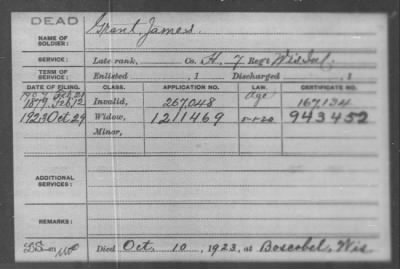 DEAD
NAME OF SOLDIER: Grant, James.
SERVICE: Late rank, Co. H, 7 Reg't Wis Inf.
TERM OF SERVICE: Enlisted , 1 Discharged , 1
DATE OF FILING. CLASS. APPLICATION NO. LAW. CERTIFICATE NO.
1907 Feb 21 Age
1879 Feb 12 Invalid, 267,048 167,134
1923 Oct 29 Widow, 1211469 943452
Minor,
ADDITIONAL SERVICES:
REMARKS:
Died Oct. 10, 1923, at Boscobel, Wis